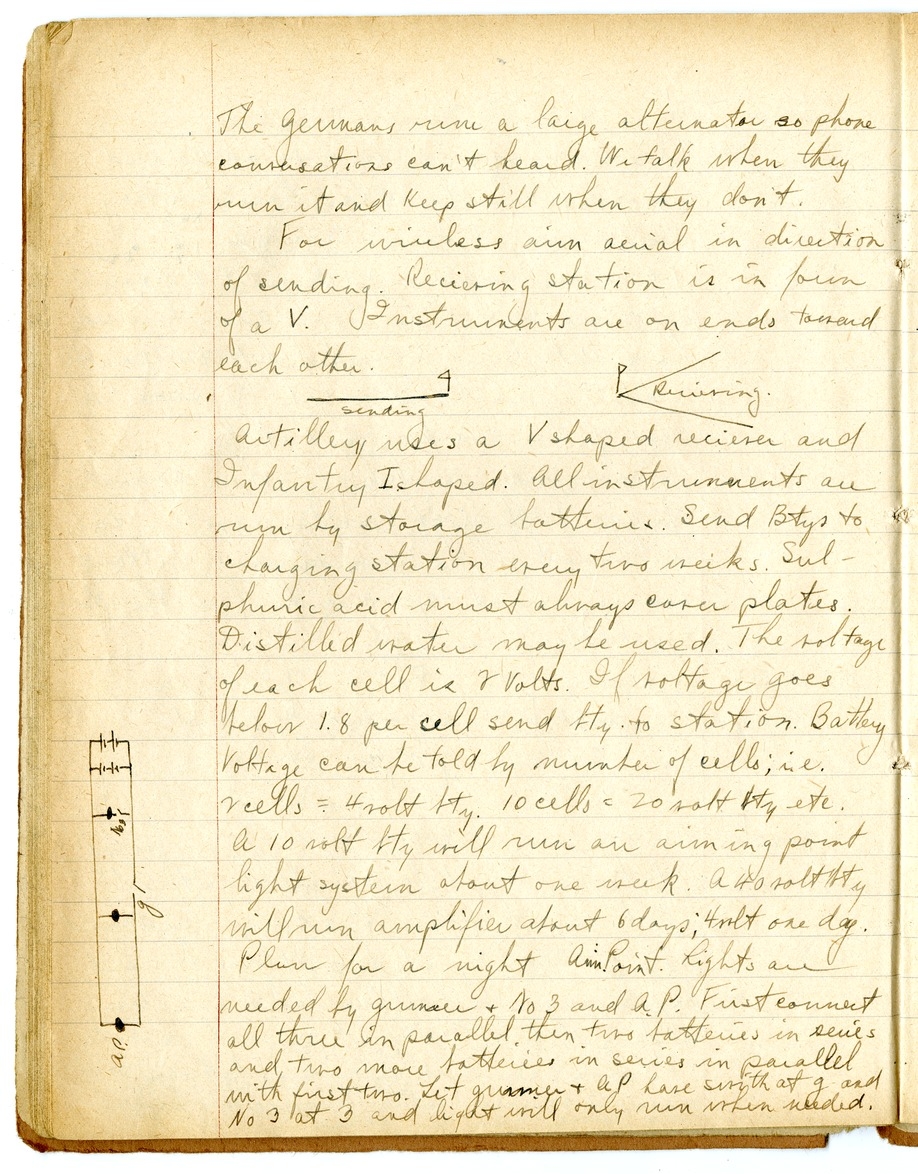 The Germans run a large alternator so phone
conversations can't heard. We talk when they
run it and keep still when they don't.
For wireless aim aerial in direction
of sending. Recieving station is in form
of a V. Instruments are on ends toward
each other.
sending
Recieving.
Artillery uses a V shaped reciever and
Infantry I shaped. All instruments are
run by storage batteries. Send Btys to
charging station every two weeks. Sul-
phuric acid must always cover plates.
Distilled water may be used. The voltage
of each cell is 2 Volts. If voltage goes
below 1.8 per cell send bty. to station. Battery
Voltage can be told by number of cells; i.e.
2 cells = 4 volt bty. 10 cells = 20 volt bty etc.
A 10 volt bty will run an aiming point
light system about one week. A 40 volt bty
will run amplifier about 6 days; 4 volt one day.
Plan for a night Aim. Point. Lights are
needed by gunner + No 3 and A.P. First connect
all three in parallel then two batteries in series
and two more batteries in series in parallel
with first two. Let gunner + AP have switch at g and
No 3 at 3 and light will only run when needed.
No 3
g
A.P.